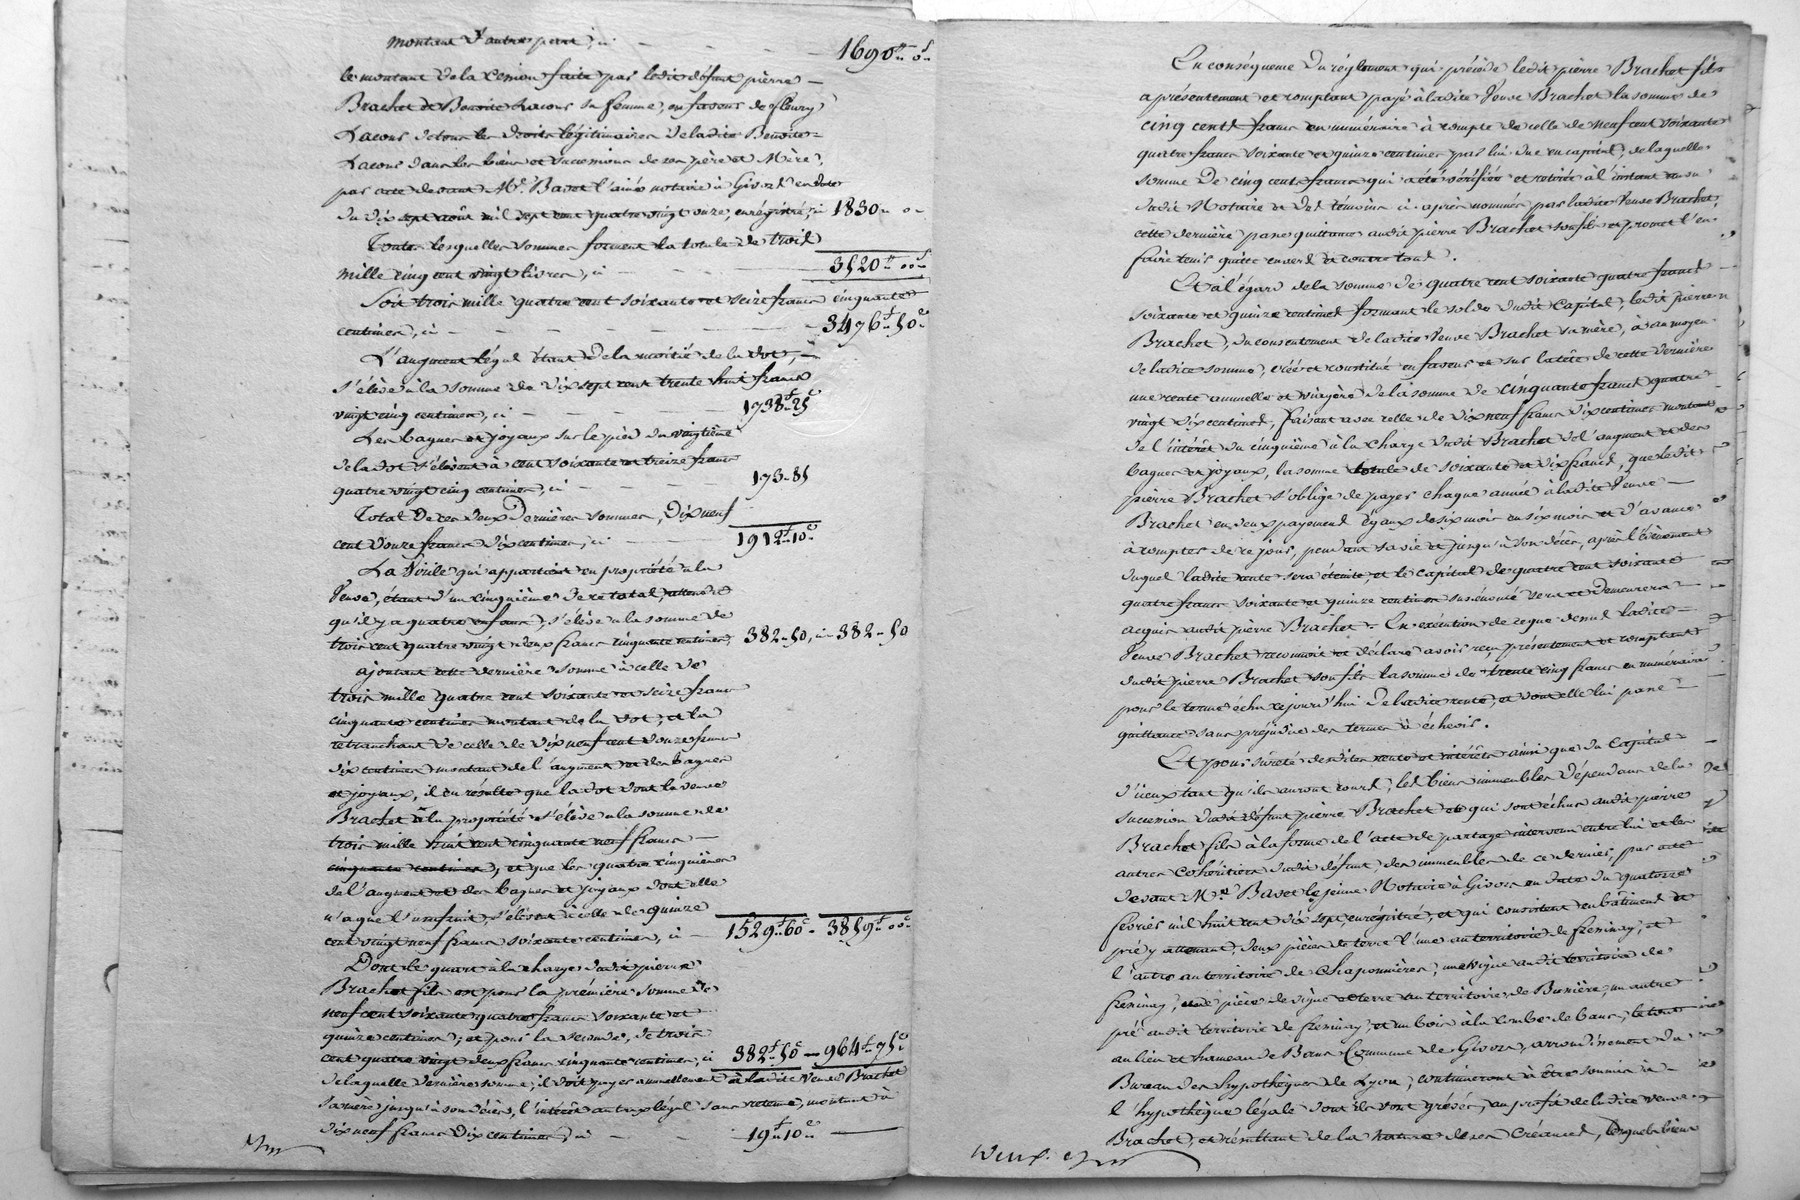 montant d'autre part, ci - - - 1690 " 0 "
le montant de la cession faite par ledit défunt pierre
Brachet et Benoite Lacons sa femme, en faveur de fleury
Lacons de tous les droits légitimaires de ladite Benoite
Lacons dans les biens et successions de ses père et Mère,
par acte devant Me. Basset l'ainé notaire à Givors en date
du dix sept août mil sept cent quatre vingt onze, enregistré, ci 1830 " 0 "
Toutes lesquelles sommes forment la totale de trois
mille cinq cent vingt livres, ci - - - 3520 " 00 "
Soit trois mille quatre cent soixante et seize francs cinquante
centimes, ci - - - 3476 f 50 c
L'augment légal étant de la moitié de la dot,
s'élève à la somme de dix sept cent trente huit francs
vingt cinq centimes, ci - - - 1738 f 25 c
Les bagues et joyaux sur le pied du vingtième
de la dot s'élèvent à cent soixante et treize francs
quatre vingt cinq centimes, ci - - - 173 - 85
Total de ces deux dernières sommes, dix neuf
cent douze francs dix centimes, ci - - 1912 f 10 c
La Virile qui appartient en propriété à la
Veuve, étant d'un cinquième de ce total, attendu
qu'il y a quatre enfans, s'élève à la somme de
trois cent quatre vingt deux francs cinquante centimes, 382 - 50, ci 382 - 50
ajoutant cette dernière somme à celle de
trois mille quatre cent soixante et seize francs
cinquante centimes montant de la dot, et la
retranchant de celle de dix neuf cent douze francs
dix centimes montant de l'augment et des bagues
et joyaux, il en résulte que la dot dont la veuve
Brachet a la propriété s'élève à la somme de
trois mille huit cent cinquante neuf francs
cinquante centimes, et que les quatre cinquièmes
de l'augment et des bagues et joyaux dont elle
n'a que l'usufruit, s'élèvent à celle de quinze
cent vingt neuf francs soixante centimes, ci - 1529 f 60 c - 3859 f 00 c
Dont le quart à la charge dudit pierre
Brachet fils est pour la première somme de
neuf cent soixante quatre francs soixante et
quinze centimes, et pour la seconde, de trois
cent quatre vingt deux francs cinquante centimes, ci 382 f 50 c - 964 f 75 c
de laquelle dernière somme, il doit payer annuellement à ladite Veuve Brachet
sa mère jusqu'à son décès, l'intérêt au taux légal sans retenue, montant à
dix neuf francs dix centimes, ci - - - 19 f 10 c
En conséquence du règlement qui précède ledit pierre Brachet fils
a présentement et comptant payé à ladite Veuve Brachet la somme de
cinq cents francs en numéraire à compte de celle de neuf cent soixante
quatre francs soixante et quinze centimes par lui due en capital, de laquelle
somme de cinq cents francs qui a été vérifiée et retirée à l'instant au vu
dudit Notaire et des témoins ci après nommés par ladite Veuve Brachet,
cette dernière passe quittance audit pierre Brachet son fils et promet l'en
faire tenir quitte envers et contre tous.
Et à l'égard de la somme de quatre cent soixante quatre francs
soixante et quinze centimes formant le solde dudit Capital, ledit pierre
Brachet, du consentement de ladite Veuve Brachet sa mère, a au moyen
de ladite somme, créé et constitué en faveur et sur la tête de cette dernière
une rente annuelle et viagère de la somme de cinquante francs quatre
vingt dix centimes, faisant avec celle de dix neuf francs dix centimes montant
de l'intérêt du cinquième à la charge dudit Brachet de l'augment et des
bagues et joyaux, la somme totale de soixante et dix francs, que ledit
pierre Brachet s'oblige de payer chaque année à ladite Veuve
Brachet en deux payemens égaux de six mois en six mois et d'avance
à compter de ce jour, pendant sa vie et jusqu'à son décès, après l'évènement
duquel ladite rente sera éteinte, et le capital de quatre cent soixante
quatre francs soixante et quinze centimes susénoncé sera et demeurera
acquis audit pierre Brachet. En exécution de ce que dessus ladite
Veuve Brachet reconnoit et déclare avoir reçu présentement et comptant
dudit pierre Brachet son fils la somme de trente cinq francs en numéraire
pour le terme échu cejourd'hui de ladite rente, et dont elle lui passe
quittance sans préjudice des termes à échoir.
Et pour sûreté desdites rente et intérêts ainsi que du Capital
d'iceux tant qu'ils auront cours, les biens immeubles dépendans de la
succession dudit défunt pierre Brachet et qui sont échus audit pierre
Brachet fils à la forme de l'acte de partage intervenu entre lui et les
autres cohéritiers dudit défunt, des immeubles de ce dernier, par acte
devant Me. Basset le jeune Notaire à Givors en date du quatorze
fevrier mil huit cent dix sept, enregistré, et qui consistent en bâtiment et
pré y attenant, deux pièces de terre l'une au territoire de fresinay, et
l'autre au territoire de Chaponnières, une vigne audit territoire de
fresinay, une pièce de vigne et terre au territoire de Bussière, un autre
pré audit territoire de fresinay, et un bois à la combe de bans, le tout
au lieu et hameau de Bans Commune de Givors, arrondissement du
Bureau des hypothèques de Lyon, continueront à être soumis à
l'hypothèque légale dont ils sont grévés, au profit de ladite veuve
Brachet, et résultant de la nature de ses Créances, lesquels biens